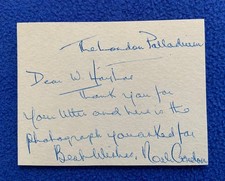 The London Palladium
Dear Mr
Thank you for
Your letter and here is the
photograph you asked for
Best Wishes, Noele Gordon